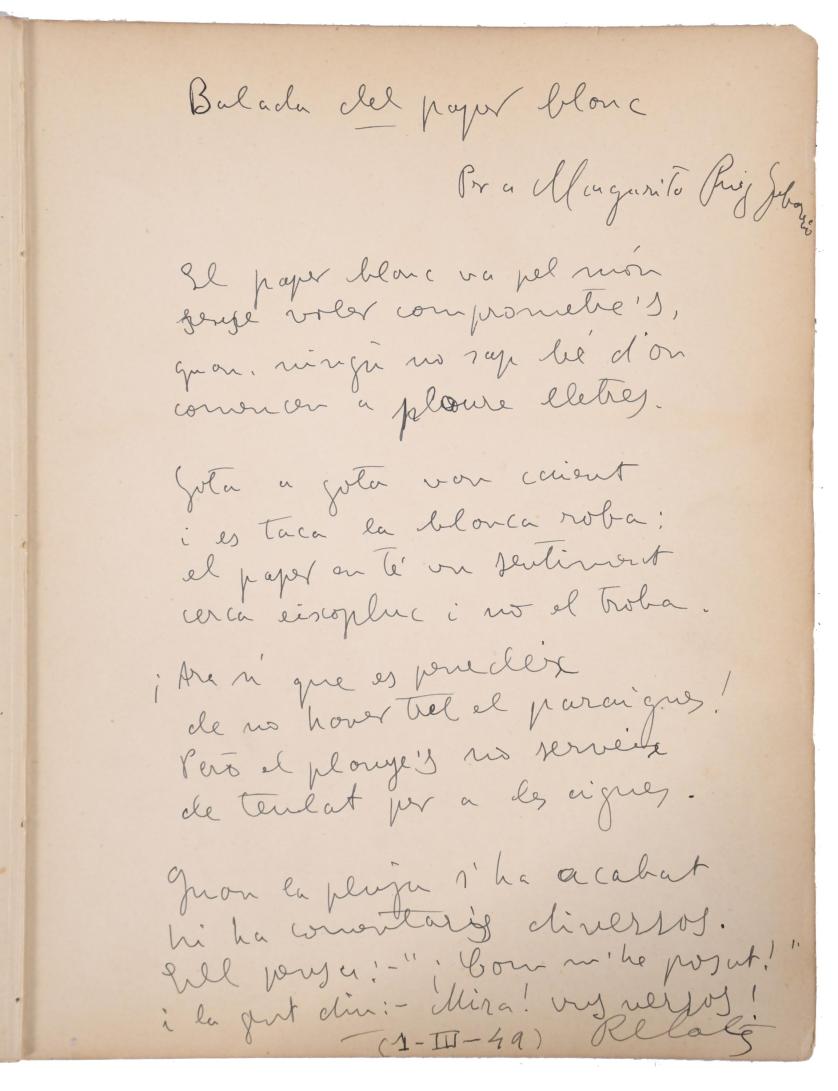 Balada del paper blanc
Per a Margarita Puig
El paper blanc va pel món
sense voler comprometre's,
quan, ningú no sap bé d'on
comencen a ploure lletres.
Gota a gota van caient
i es taca la blanca roba:
el paper en té un sentiment
cerca aixopluc i no el troba.
¡Ara sí que es penedeix
de no haver tret el paraigues!
Però el planye's no serveix
de teulat per a les aigues.
Quan la pluja s'ha acabat
hi ha comentaris diversos.
Ell pensa:-"¡Com m'he posat!"
i la gent diu:- Mira! uns versos!
(1-III-49)